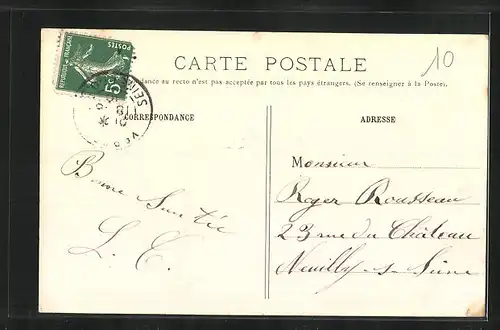 POSTES
5c
CARTE POSTALE
10
dance au recto n'est pas acceptée par tous les pays étrangers. (Se renseigner à la Poste).
SEINE
CORRESPONDANCE
ADRESSE
Monsieur
Bonne Santée
Roger Rousseau
L. C.
23 rue du Château
Neuilly-s-Seine